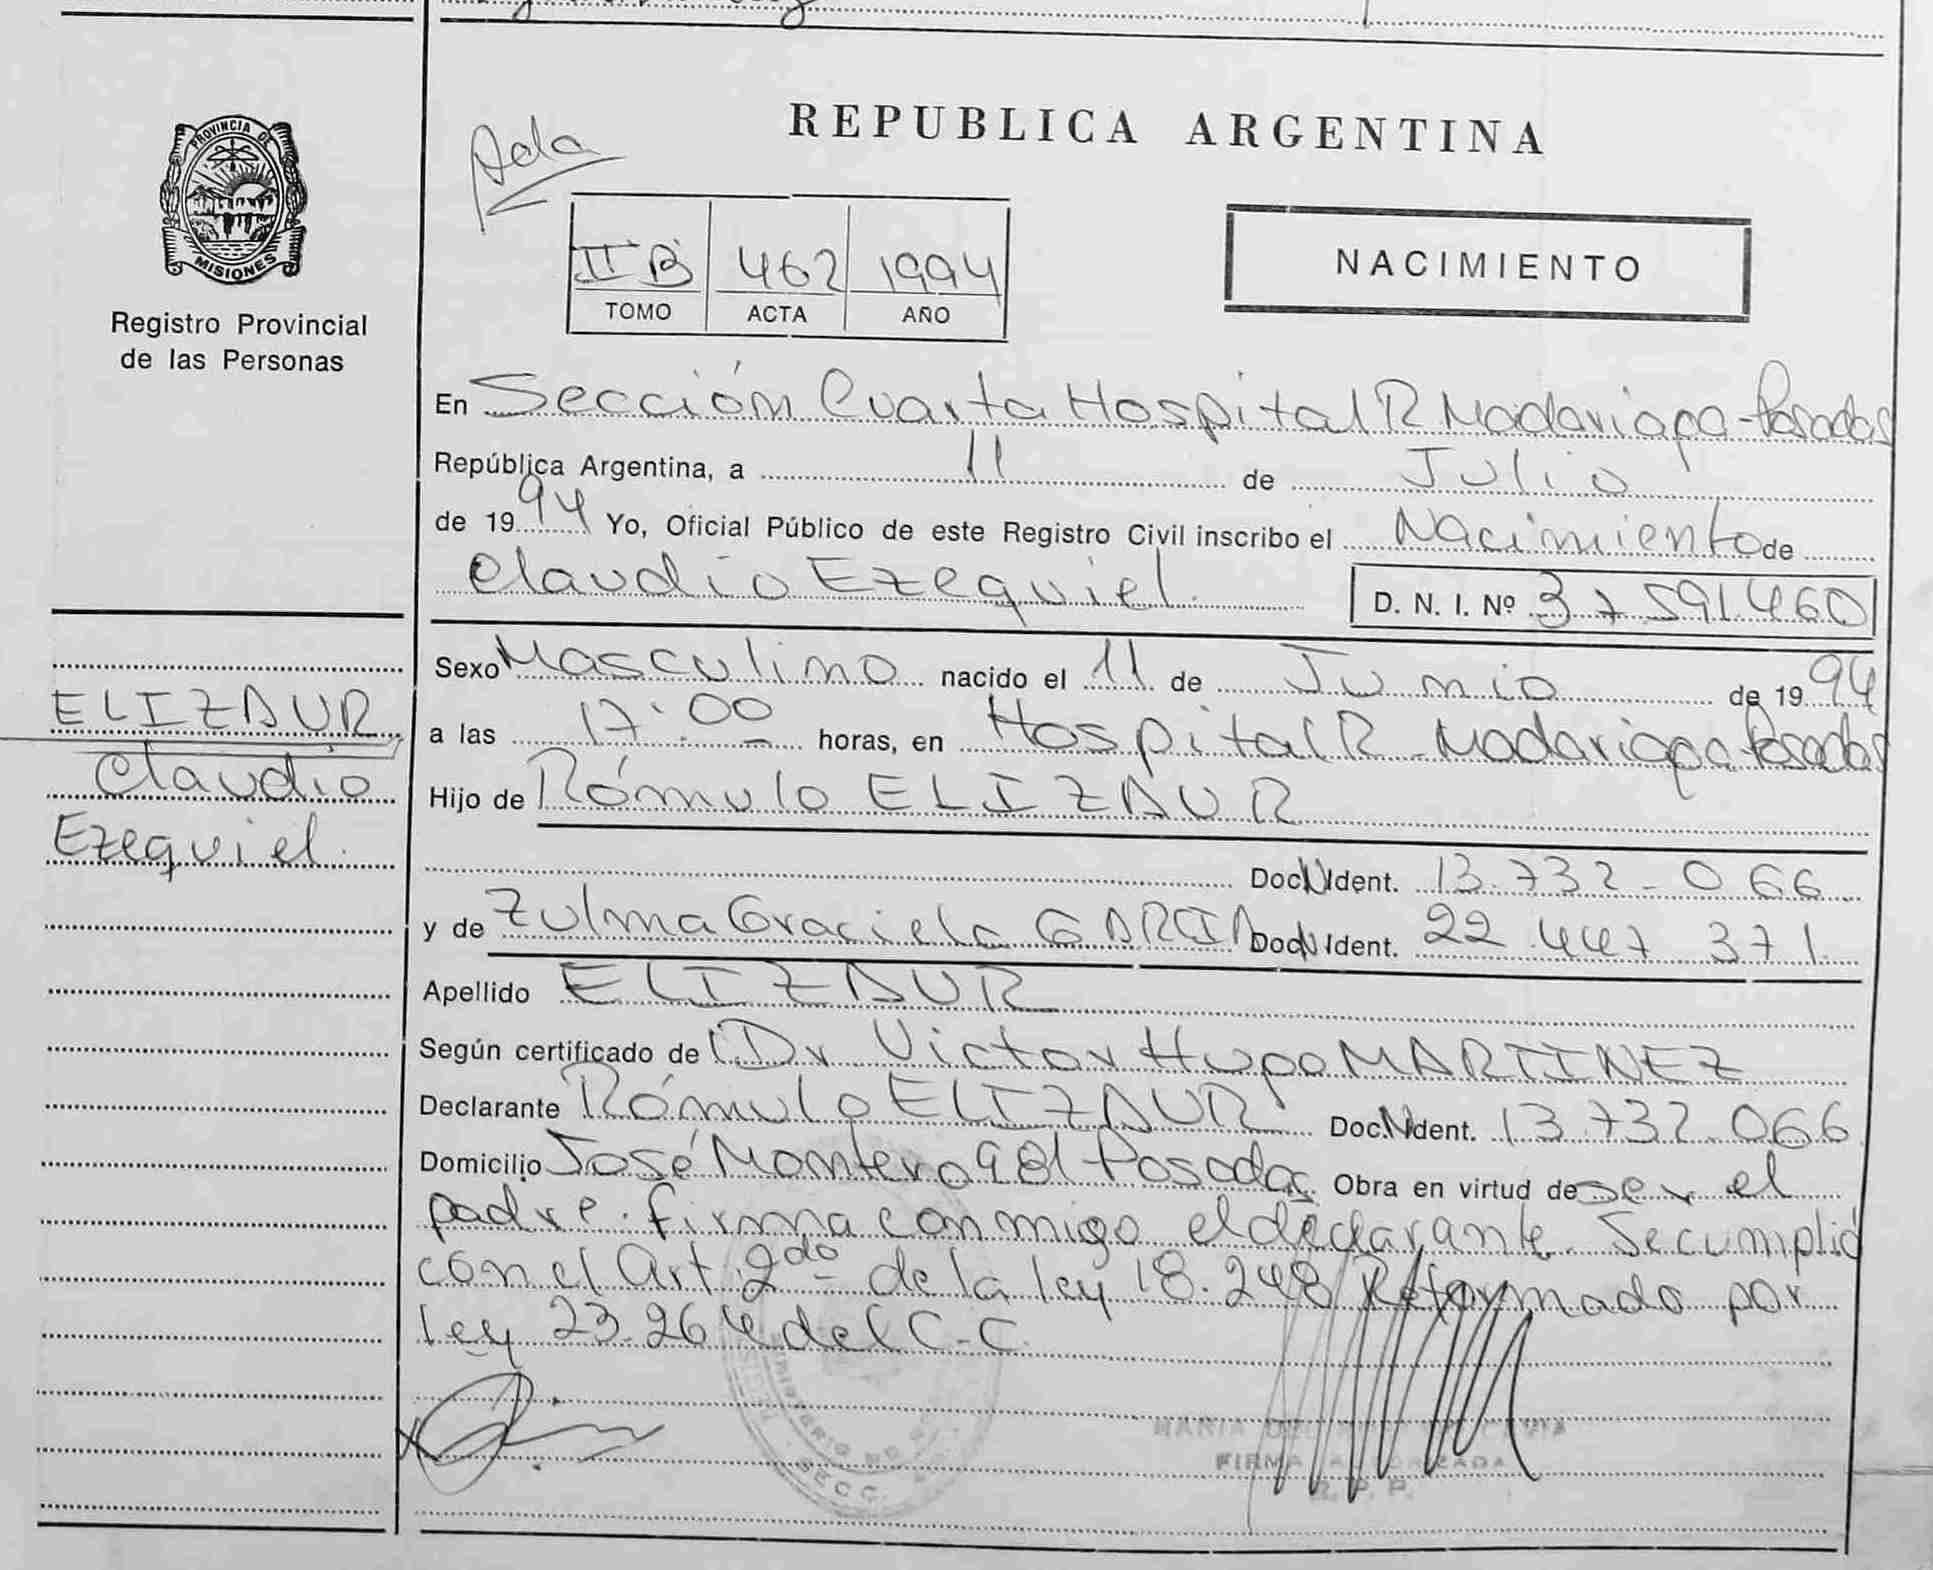 PROVINCIA DE
MISIONES
Registro Provincial
de las Personas
REPUBLICA ARGENTINA
II B 462 1994
TOMO ACTA AÑO
NACIMIENTO
En Sección Cuarta Hospital R Madariaga - Posadas
República Argentina, a 11 de Julio
de 1994 Yo, Oficial Público de este Registro Civil inscribo el Nacimiento de
Claudio Ezequiel. D. N. I. Nº 37 591.460
ELIZAUR
Claudio
Ezequiel.
Sexo Masculino nacido el 11 de Junio de 1994
a las 17.00 horas, en Hospital R. Madariaga Posadas
Hijo de Rómulo ELIZAUR
Doc. N Ident. 13.732.066
y de Zulma Graciela GARCIA Doc. N Ident. 22.447.371.
Apellido ELIZAUR
Según certificado de Dr Victor Hugo MARTINEZ
Declarante Rómulo ELIZAUR Doc. N Ident. 13.732.066
Domicilio José Montero 981 Posadas Obra en virtud de ser el
padre. firma conmigo el declarante. Se cumplió
con el Art. 2do de la ley 18.248 Reformado por
ley 23.264 del C-C.
SECC.
MARIA
FIRMA AUTORIZADA
R. P. P.